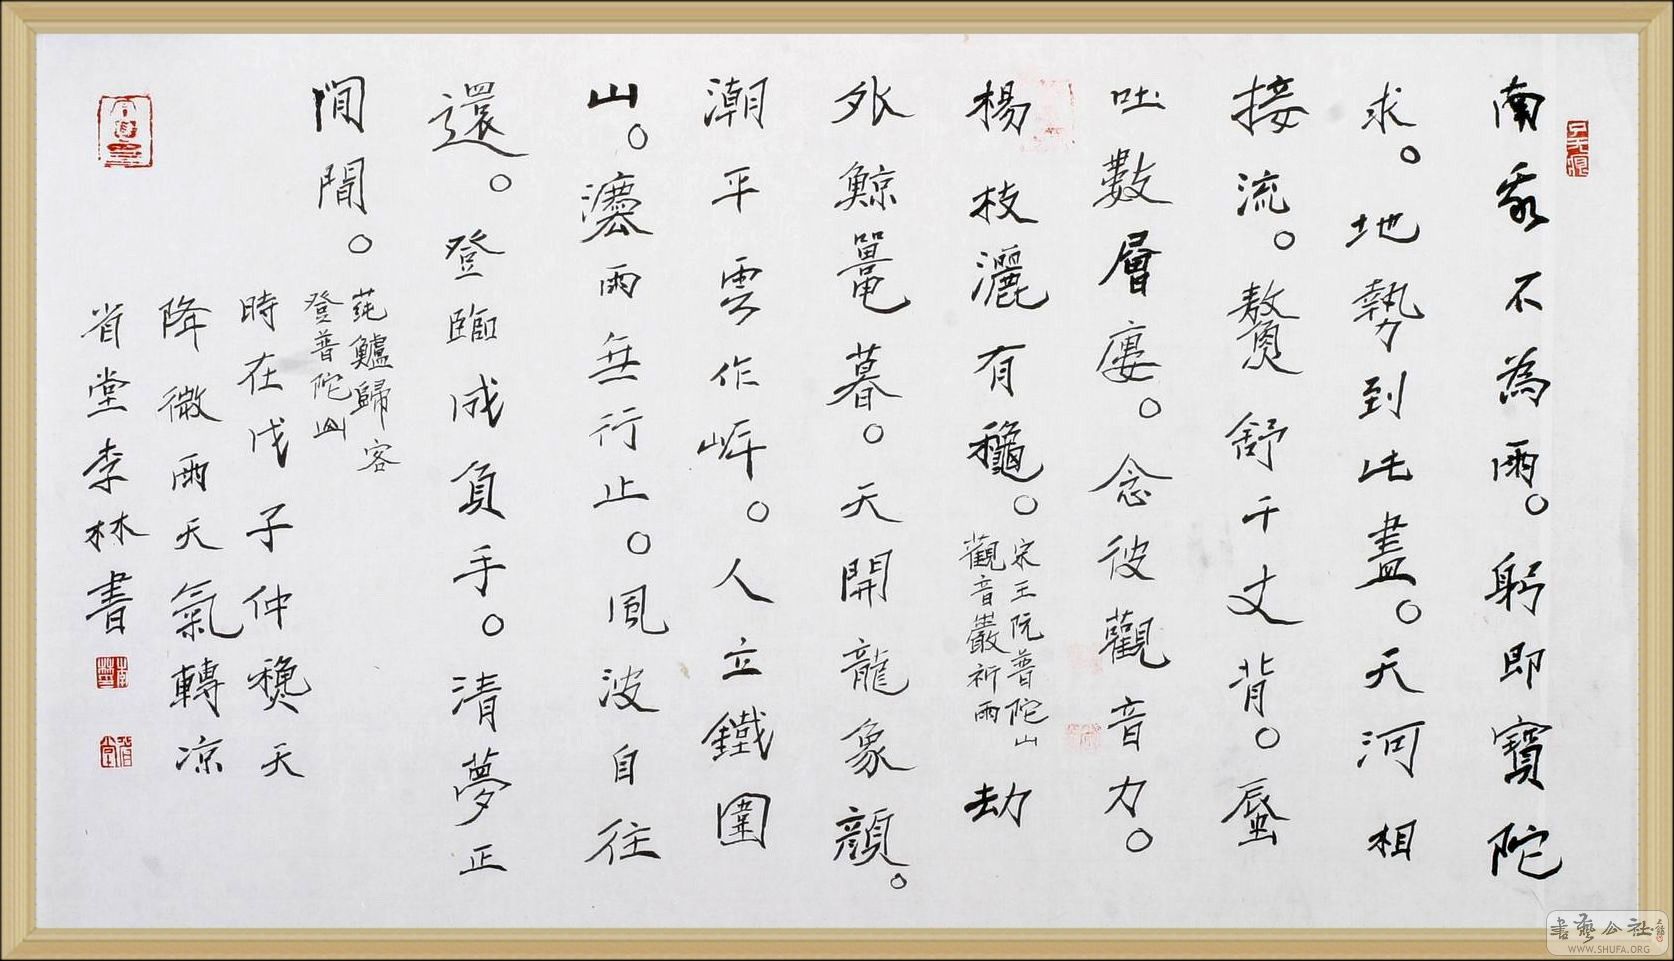 南不為雨。躬即寶陀
求。地勢到此盡。天河相
接流。鰲舒千丈背。蜃
吐數層廔。念彼觀音力。
楊枝灑有龝。
宋王阮普陀山
觀音巖祈雨
劫
外鯨鼉暮。天開龍象顏。
潮平雲作岸。人立鐵圍
山。灋雨無行止。風波自往
還。登臨成負手。清夢正
閒間。
莼鱸歸客
登普陀山
時在戊子仲龝天
降微雨天氣轉凉
省堂李林書
書藝公社
WWW.SHUFA.ORG